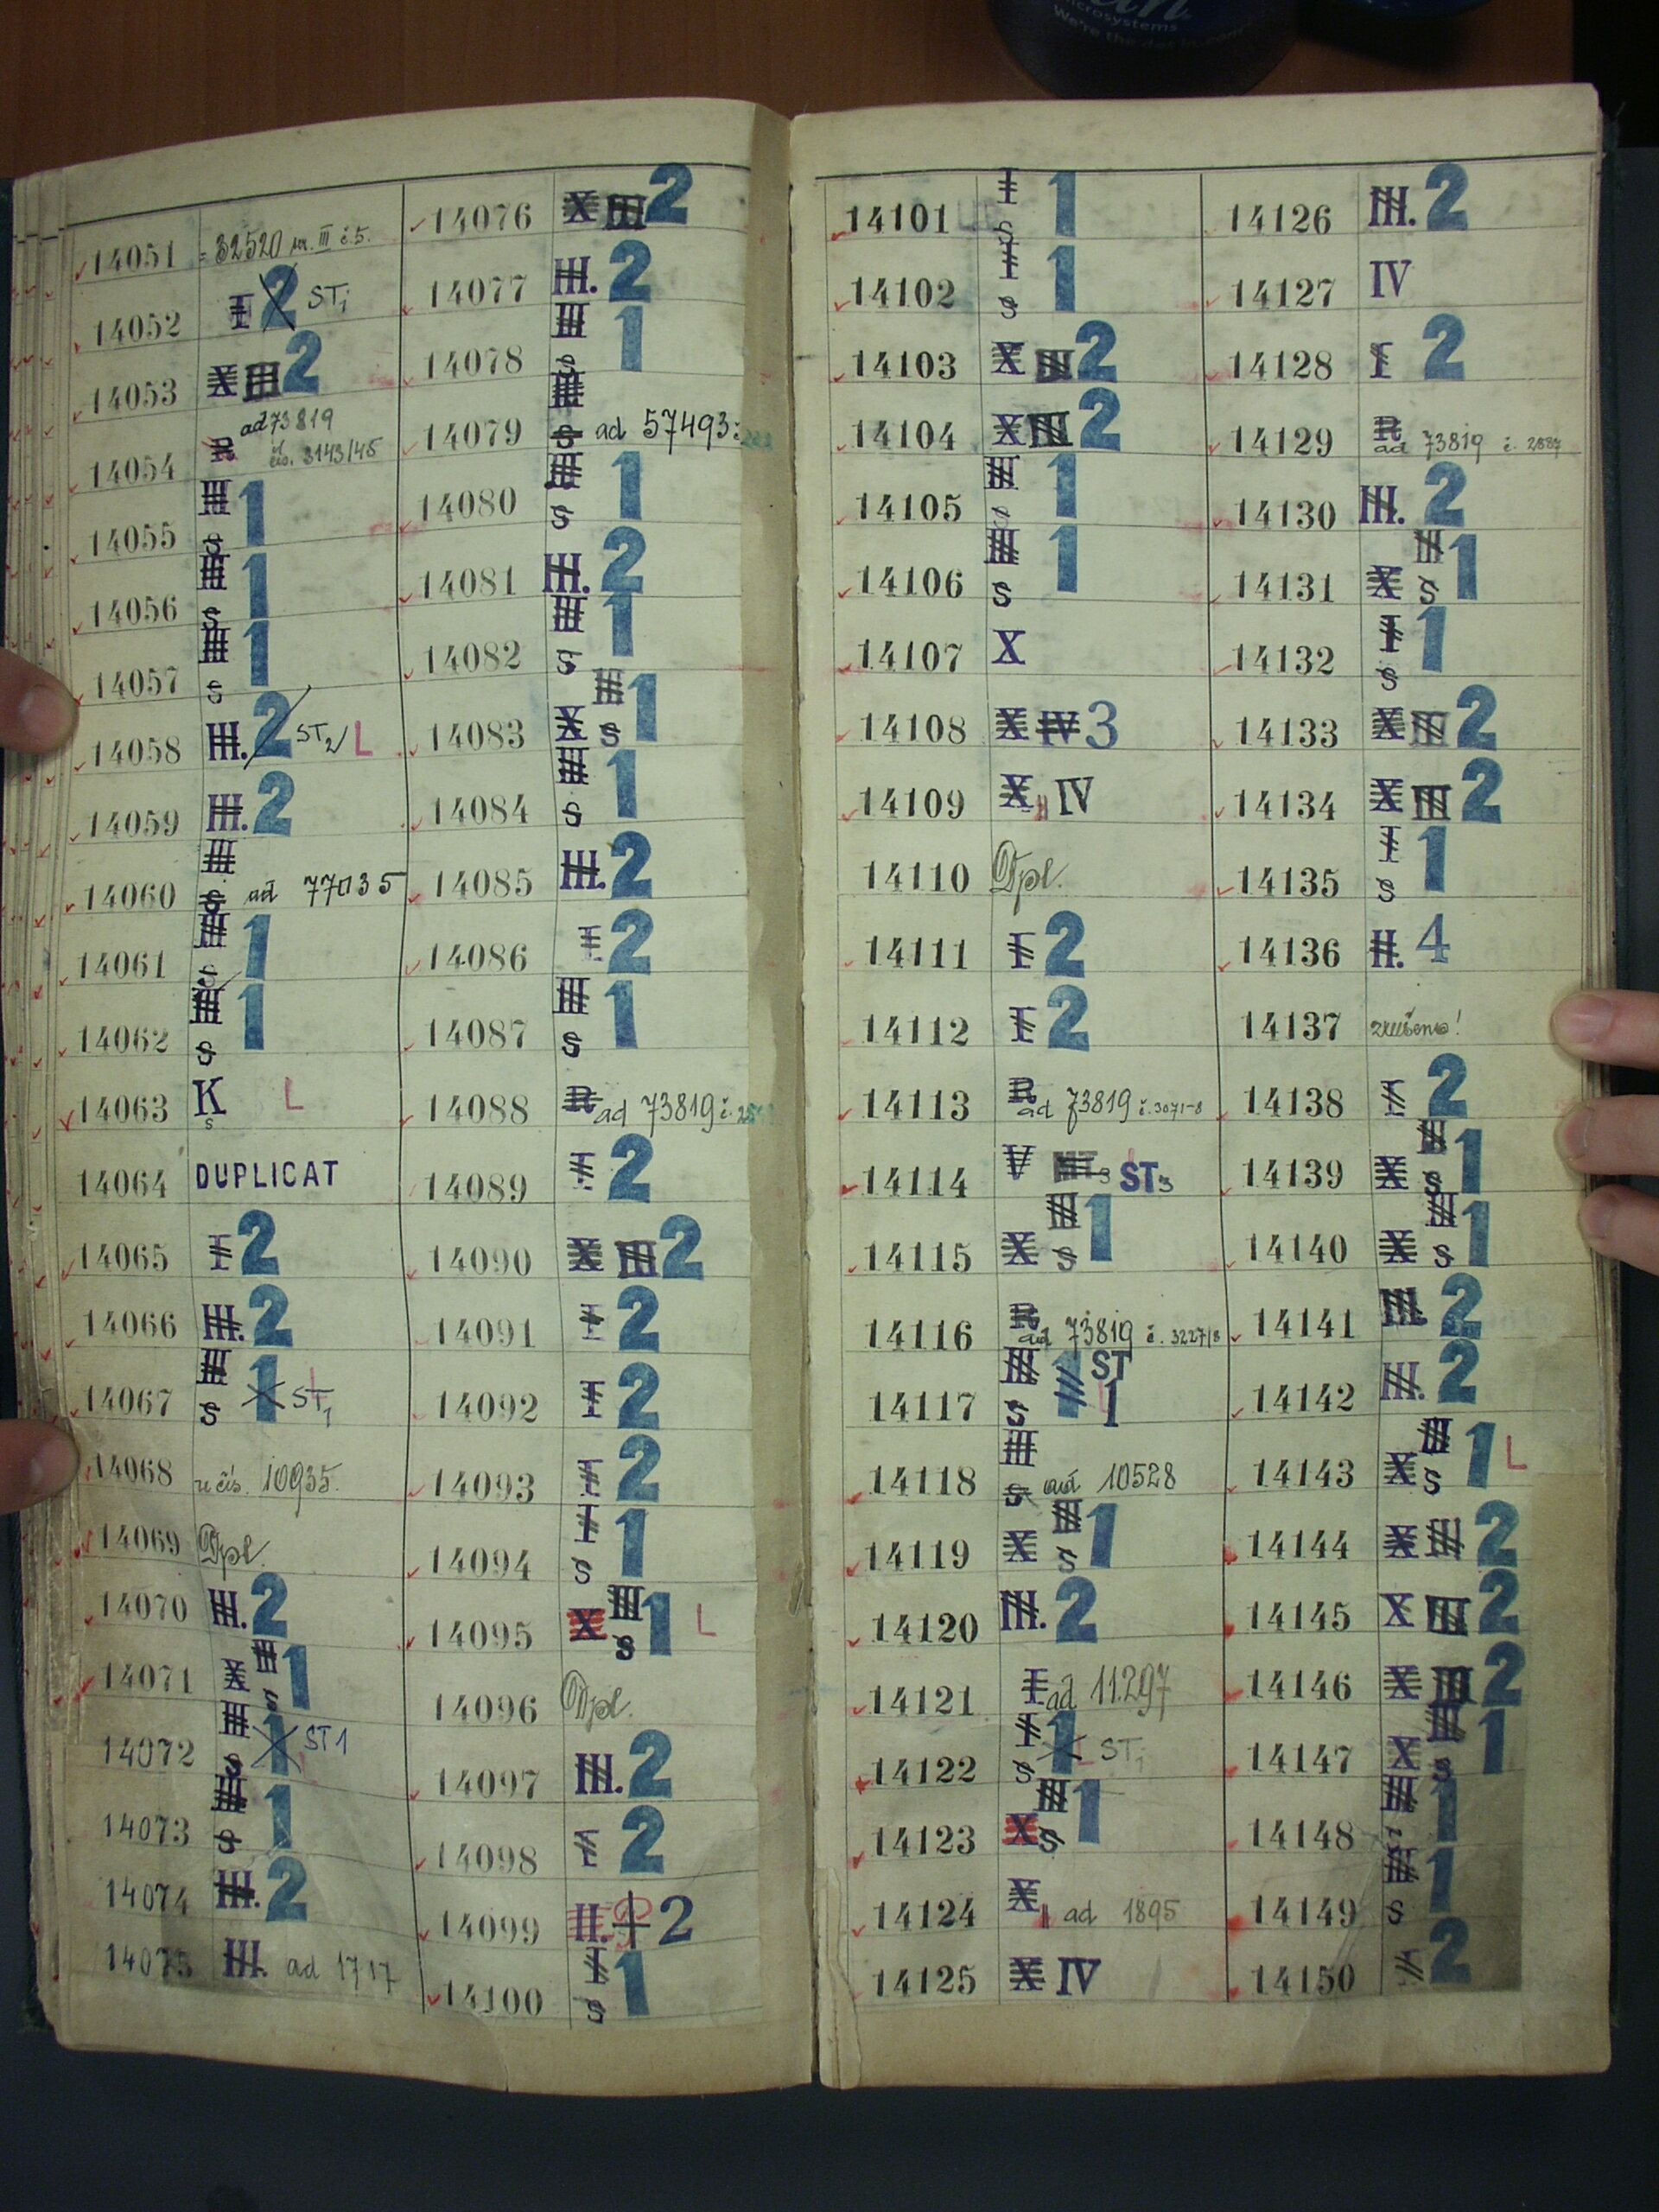 microsystems
14051 = 32520 sr. III č. 5.
14052 I 2 ST1
14053 X III 2
14054 R ad 73819 čís. 3143/45
14055 III S 1
14056 III S 1
14057 III S 1
14058 III. 2 ST2 L
14059 III. 2
14060 III S ad 77035
14061 III S 1
14062 III S 1
14063 K s L
14064 DUPLICAT
14065 I 2
14066 III. 2
14067 III S 1 ST1 L
14068 čís. 10935.
14069 Dpl.
14070 III. 2
14071 X III S 1
14072 III S 1 ST1
14073 III S 1
14074 III. 2
14075 III. ad 1717
14076 X III 2
14077 III. 2
14078 III S 1
14079 III S ad 57493
14080 III S 1
14081 III. 2
14082 III S 1
14083 X III S 1
14084 III S 1
14085 III. 2
14086 I 2
14087 III S 1
14088 R ad 73819 č.
14089 I 2
14090 X III 2
14091 I 2
14092 I 2
14093 I 2
14094 I S 1
14095 X III S 1 L
14096 Dpl.
14097 III. 2
14098 I 2
14099 II. 2
14100 I S 1
14101 I S 1
14102 I S 1
14103 X III 2
14104 X III 2
14105 III S 1
14106 III S 1
14107 X
14108 X IV 3
14109 X IV
14110 Dpl.
14111 I 2
14112 I 2
14113 R ad 73819 č. 3071-8
14114 V ST3
14115 X III S 1
14116 R ad 73819 č. 3227/8
14117 III S 1 ST 1
14118 III S ad 10528
14119 X III S 1
14120 III. 2
14121 I ad 11297
14122 I S 1 ST1
14123 X III S 1
14124 X ad 1895
14125 X IV
14126 III. 2
14127 IV
14128 I 2
14129 R ad 73819 č. 2887
14130 III. 2
14131 X III S 1
14132 I S 1
14133 X III 2
14134 X III 2
14135 I S 1
14136 II. 4
14137 zrušeno!
14138 I 2
14139 X III S 1
14140 X III S 1
14141 III. 2
14142 III. 2
14143 X III S 1 L
14144 X III 2
14145 X III 2
14146 X III 2
14147 X III S 1
14148 III 1
14149 III S 1
14150 I 2